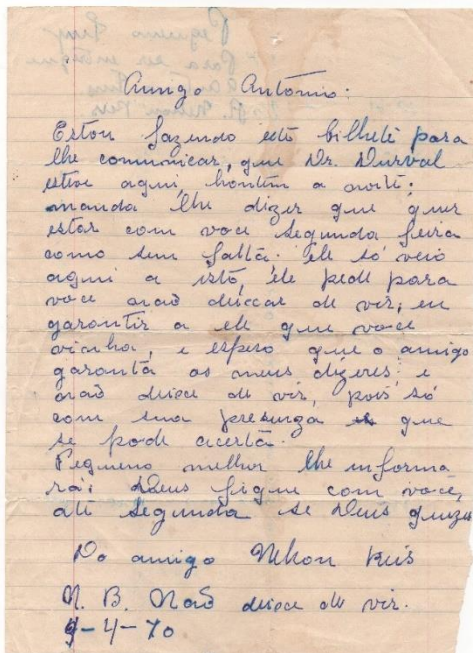 Amigo Antônio:
Estou fazendo este bilhete para
lhe comunicar, que Dr. Durval
esteve aqui, hontem a noite;
manda lhe dizer que quer
estar com voce segunda feira
como sem falta. ele só veio
aqui a isto, ele pede para
voce não deiccar de vir; eu
garantir a ele que voce
vinha, e espero que o amigo
garanta os meus dizeres e
não deice de vir, pois só
com sua presença é que
se pode acerta.
Pequeno melhor lhe informa
rá; Deus fique com voce,
até segunda se Deus quizer
Do amigo Nelson Reis
N. B. Não deice de vir.
9-4-70